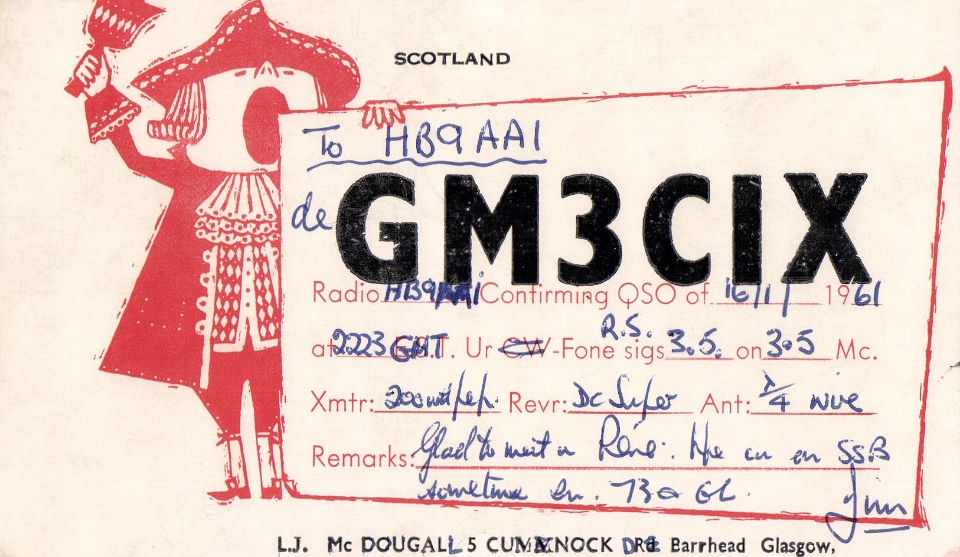 SCOTLAND
To HB9AAI
de GM3CIX
Radio HB9AAI Confirming QSO of 16/1/ 1961
at 2223 GMT. Ur CW-Fone sigs R.S. 3.5. on 3.5 Mc.
Xmtr: p.e.p. Recvr: DC Super Ant: λ/4 wire
Remarks: Glad to meet u Réné. Hpe cu on SSB
sometime en. 73 GL. Jim
L.J. Mc DOUGALL 5 CUMNOCK DR. Barrhead Glasgow,